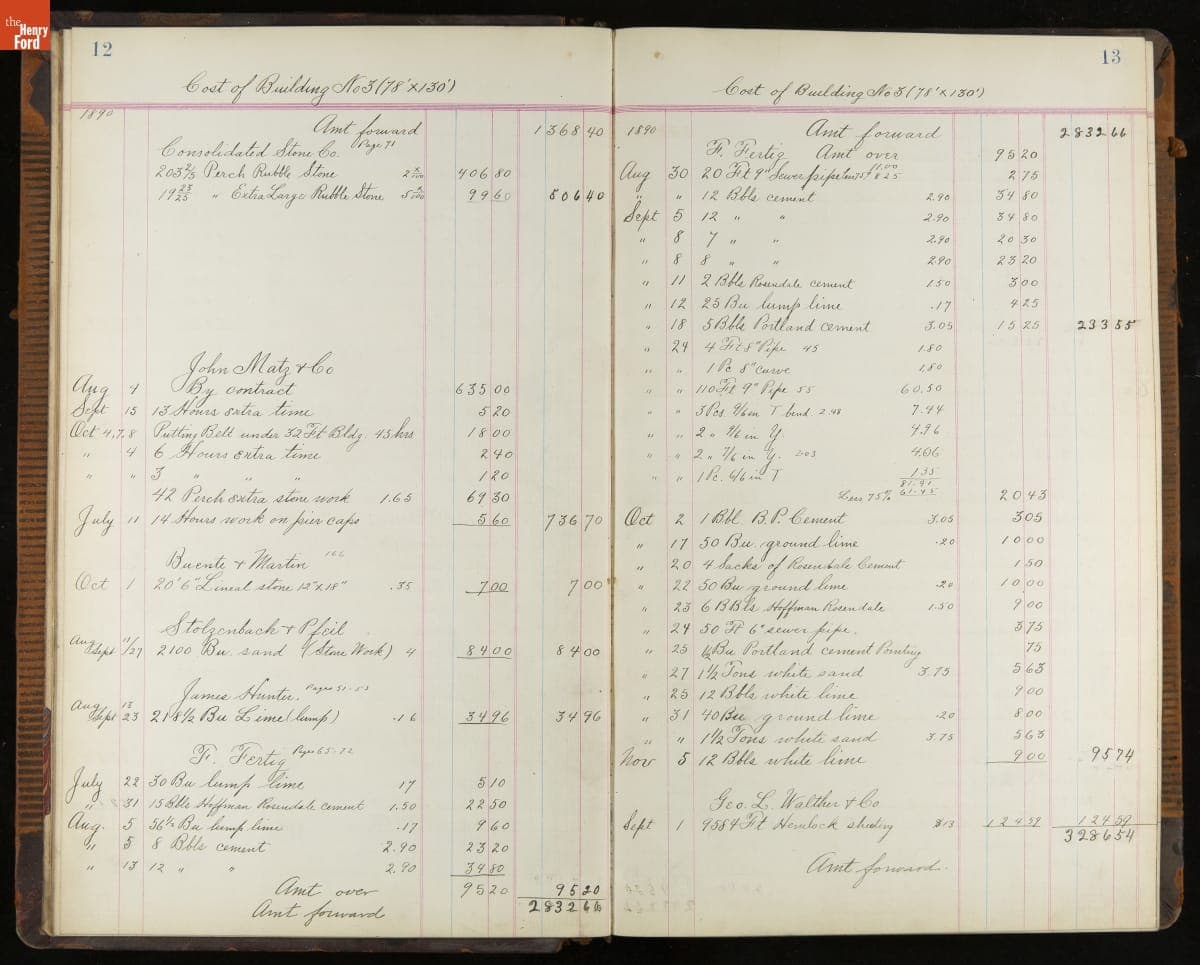 the Henry Ford
12
Cost of Building No 3 (78' x 130')
1890
Amt forward 1368 40
Consolidated Stone Co. Page 71
203 2/5 Perch Rubble Stone 2 406 80
19 23/25 " Extra Large Rubble Stone 5 99 60 506 40
John Matz & Co
Aug 4 By contract 635 00
Sept 15 13 Hours extra time 5 20
Oct 4,7,8 Putting Belt under 32 Ft Bldg. 45 hrs 18 00
" 4 6 Hours extra time 2 40
" " 3 " " " 1 20
42 Perch extra stone work 1.65 69 30
July 11 14 Hours work on pier caps 5 60 736 70
Buente & Martin 166
Oct 1 20' 6" Lineal stone 12" x 18" .35 7 00 7 00
Stolzenbach & Pfeil
Aug 11
Sept /27 2100 Bu. sand (Stone Work) 4 84 00 84 00
James Hunter. Pages 51-53
Aug 13
Sept 23 218 1/2 Bu Lime (lump) .16 34 96 34 96
F. Fertig Page 65-72
July 22 30 Bu lump lime 17 5 10
" 31 15 Bbls Hoffman Rosendale cement 1.50 22 50
Aug. 5 56 1/2 Bu lump lime .17 9 60
" 5 8 Bbls cement 2.90 23 20
" 13 12 " " 2.90 34 80
Amt over 95 20 95 20
Amt forward 2832 66
13
Cost of Building No 3 (78' x 130')
1890 Amt forward 2832 66
F. Fertig Amt over 95 20
Aug 30 20 Ft 9" Sewer pipe less 75% 11.00 8.25 2 75
" " 12 Bbls cement 2.90 34 80
Sept 5 12 " " 2.90 34 80
" 8 7 " " 2.90 20 30
" 8 8 " " 2.90 23 20
" 11 2 Bbls Rosendale cement 1.50 3 00
" 12 25 Bu lump lime .17 4 25
" 18 5 Bbls Portland cement 3.05 15 25 233 55
" 24 4 Ft 8" Pipe 45 1.80
" " 1 Pc 8" curve 1.80
" " 110 Ft 9" Pipe 55 60.50
" " 3 Pcs. 9/6 in T bend 2.48 7.44
" " 2 " 9/6 in Y. 4.96
" " 2 " 7/6 in Y. 2.03 4.06
" " 1 Pc. 6/6 in T 1.35
81.91
Less 75% 61.45 20 43
Oct 2 1 Bbl. B.P. Cement 3.05 3 05
" 17 50 Bu. ground lime .20 10 00
" 20 4 Sacks of Rosendale Cement 1 50
" 22 50 Bu ground lime .20 10 00
" 23 6 BBls Hoffman Rosendale 1.50 9 00
" 24 50 Ft 6" sewer pipe. 3 75
" 25 1/2 Bu Portland cement Pointing 75
" 27 1 1/2 Tons white sand 3.75 5 63
" 25 12 Bbls white lime 9 00
" 31 40 Bu ground lime .20 8 00
" " 1 1/2 Tons white sand 3.75 5 63
Nov 5 12 Bbls white lime 9 00 95 74
Geo. L. Walther & Co
Sept 1 9584 Ft Hemlock sheeting $13 124 59 124 59
3286 54
Amt forward.